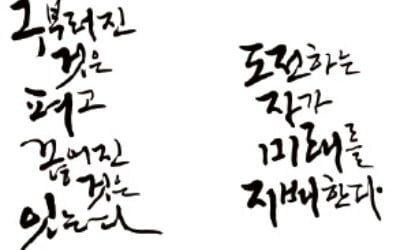 구부러진
것은
펴고
끊어진
것은
잇는다
도전하는
자가
미래를
지배한다.